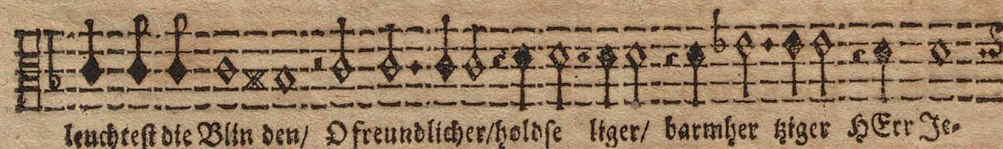 leuchtest die Blin den/ O freundlicher/ holdse liger/ barmher tziger HErr Je-